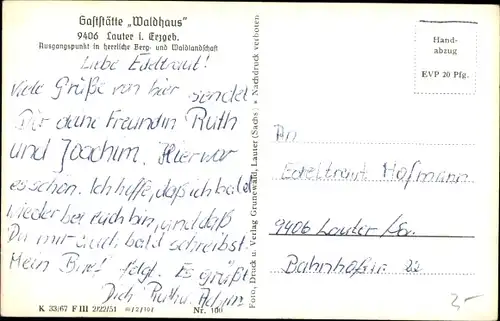 Gaststätte „Waldhaus"
9406 Lauter i. Erzgeb.
Ausgangspunkt in herrliche Berg- und Waldlandschaft
Liebe Edeltraut!
Viele Grüße von hier sendet
Dir deine Freundin Ruth
und Joachim. Hier war
es schön. Ich hoffe, daß ich bald
wieder bei euch bin, und daß
Du mir auch bald schreibst.
Mein Brief folgt. Es grüßt
Dich Ruth u.
K 33/67 F III 2/22/51
Nr. 100
Foto, Druck u. Verlag Grunewald, Lauter (Sachs) • Nachdruck verboten
Hand-
abzug
EVP 20 Pfg.
An
Edeltraut Hofmann
9406 Lauter
Bahnhofstr. 22